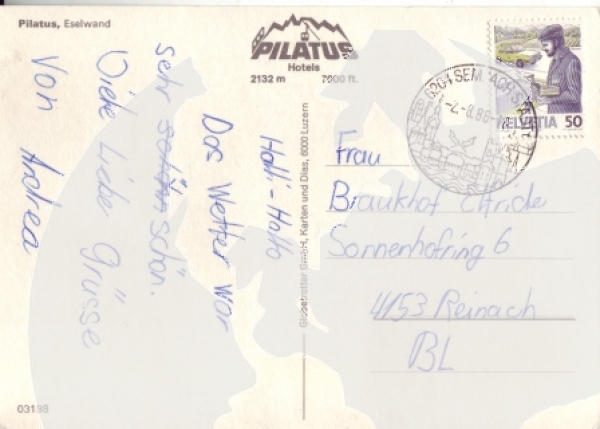 Pilatus, Eselwand
PILATUS
Hotels
2132 m 7000 ft.
Halli-Hallo
Das Wetter war
sehr schön schön.
Viele Liebe Grüsse
Von Andrea
03198
Globetrotter GmbH, Karten und Dias, 6000 Luzern
6204 SEM
-2.-8.86-
HELVETIA 50
Frau
Braukhof
Sonnenhofring 6
4153 Reinach
BL